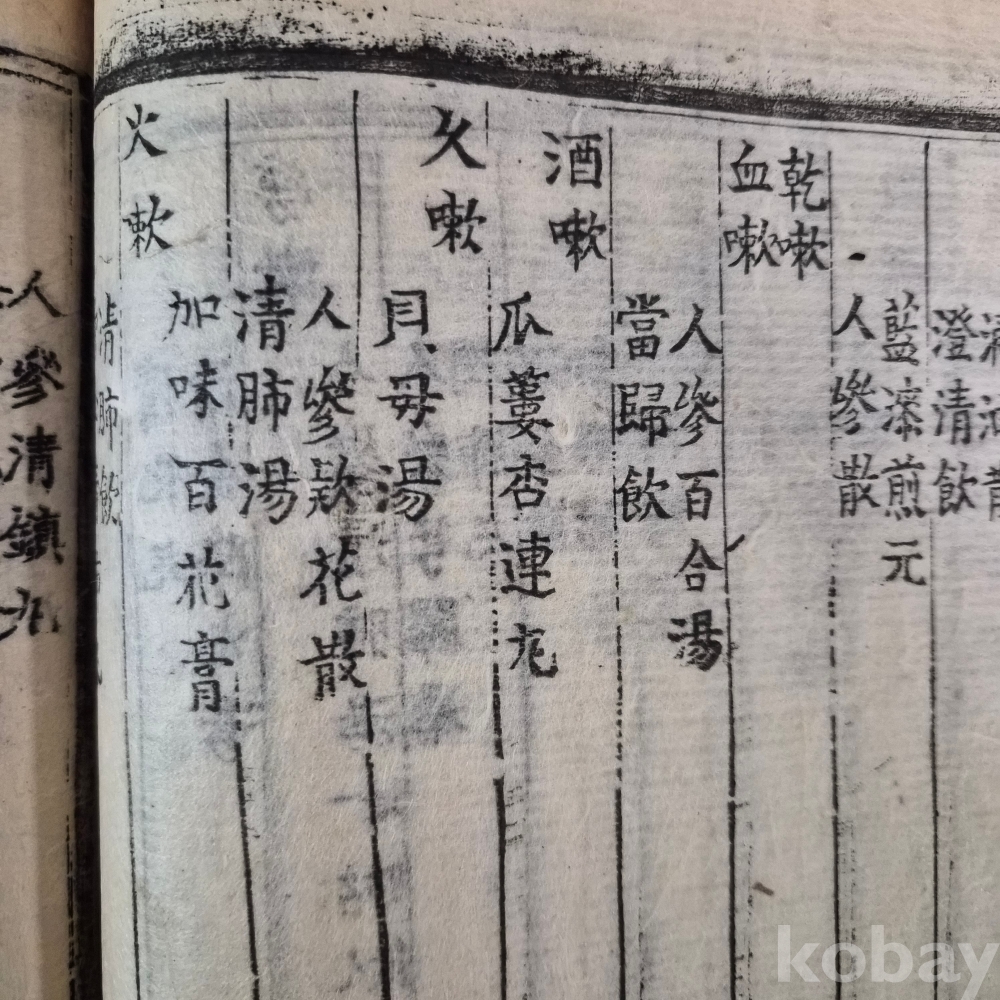 澄清飲
藍漆煎元
人參散
乾嗽
血嗽
人參百合湯
當歸飲
酒嗽
瓜蔞杏連丸
久嗽
貝母湯
人參欵花散
清肺湯
加味百花膏
火嗽
清肺飲
人參清鎮丸
kobay